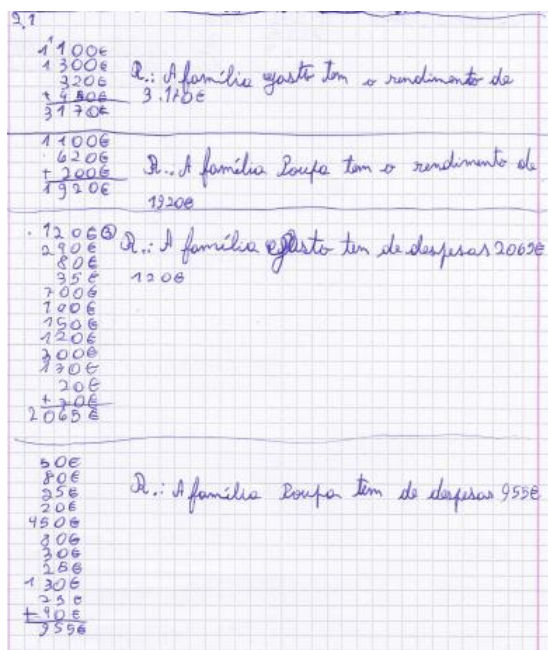 2.1
1100€
1300€
320€
+ 450€
3170€
R.: A família gasto tem o rendimento de
3.170€
1100€
620€
+ 200€
1920€
R.: A família Poupa tem o rendimento de
1920€
120€
290€
80€
35€
700€
100€
150€
120€
300€
20€
2065€
R.: A família gasto ten de despesas 2065€
120€
50€
80€
25€
20€
450€
80€
30€
25€
130€
25€
+ 40€
955€
R.: A família Poupa tem de despesas 955€